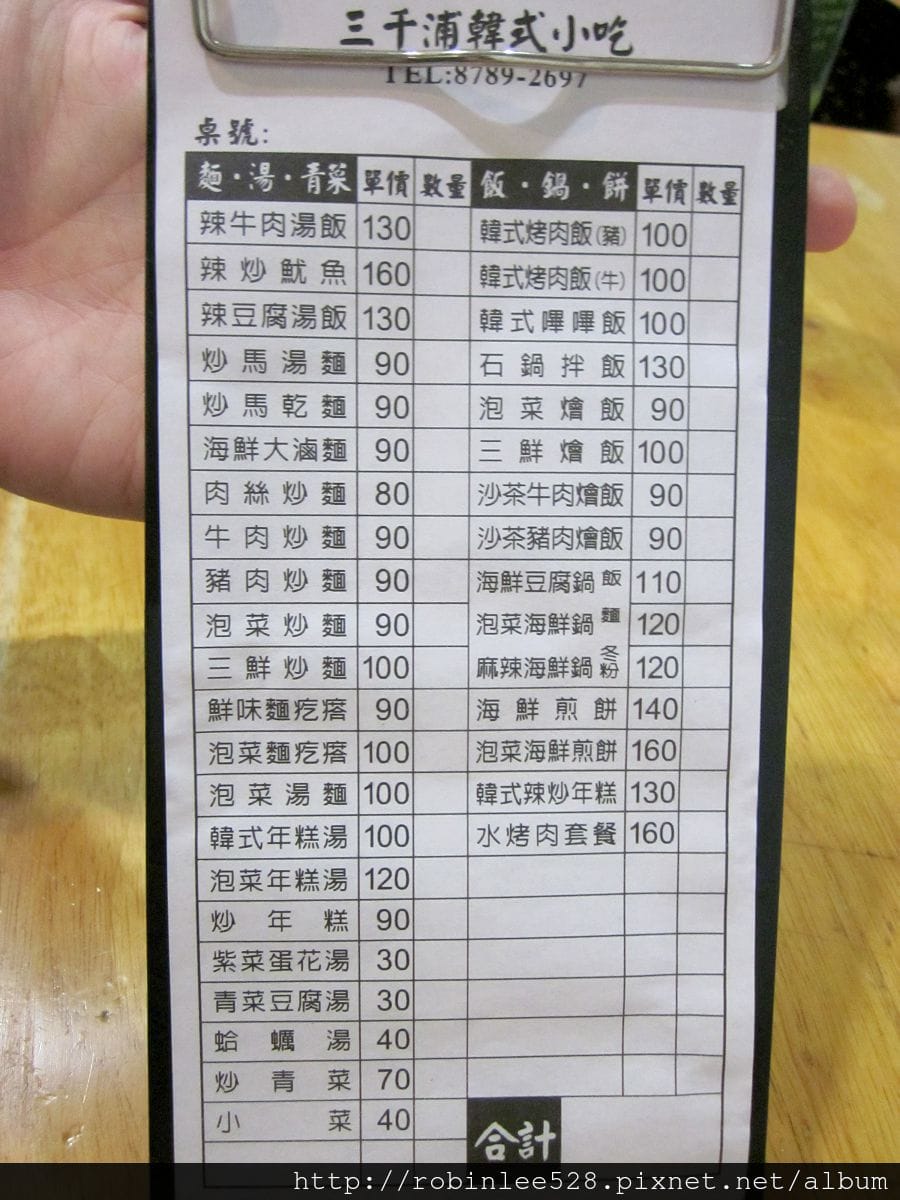 三千浦韓式小吃
TEL:8789-2697
桌號:
麵・湯・青菜 單價 數量 飯・鍋・餅 單價 數量
辣牛肉湯飯 130 韓式烤肉飯(豬) 100
辣炒魷魚 160 韓式烤肉飯(牛) 100
辣豆腐湯飯 130 韓式嗶嗶飯 100
炒馬湯麵 90 石鍋拌飯 130
炒馬乾麵 90 泡菜燴飯 90
海鮮大滷麵 90 三鮮燴飯 100
肉絲炒麵 80 沙茶牛肉燴飯 90
牛肉炒麵 90 沙茶豬肉燴飯 90
豬肉炒麵 90 海鮮豆腐鍋 飯 110
泡菜炒麵 90 泡菜海鮮鍋 麵 120
三鮮炒麵 100 麻辣海鮮鍋 冬粉 120
鮮味麵疙瘩 90 海鮮煎餅 140
泡菜麵疙瘩 100 泡菜海鮮煎餅 160
泡菜湯麵 100 韓式辣炒年糕 130
韓式年糕湯 100 水烤肉套餐 160
泡菜年糕湯 120
炒年糕 90
紫菜蛋花湯 30
青菜豆腐湯 30
蛤蠣湯 40
炒青菜 70
小菜 40
合計
http://robinlee528.pixnet.net/album